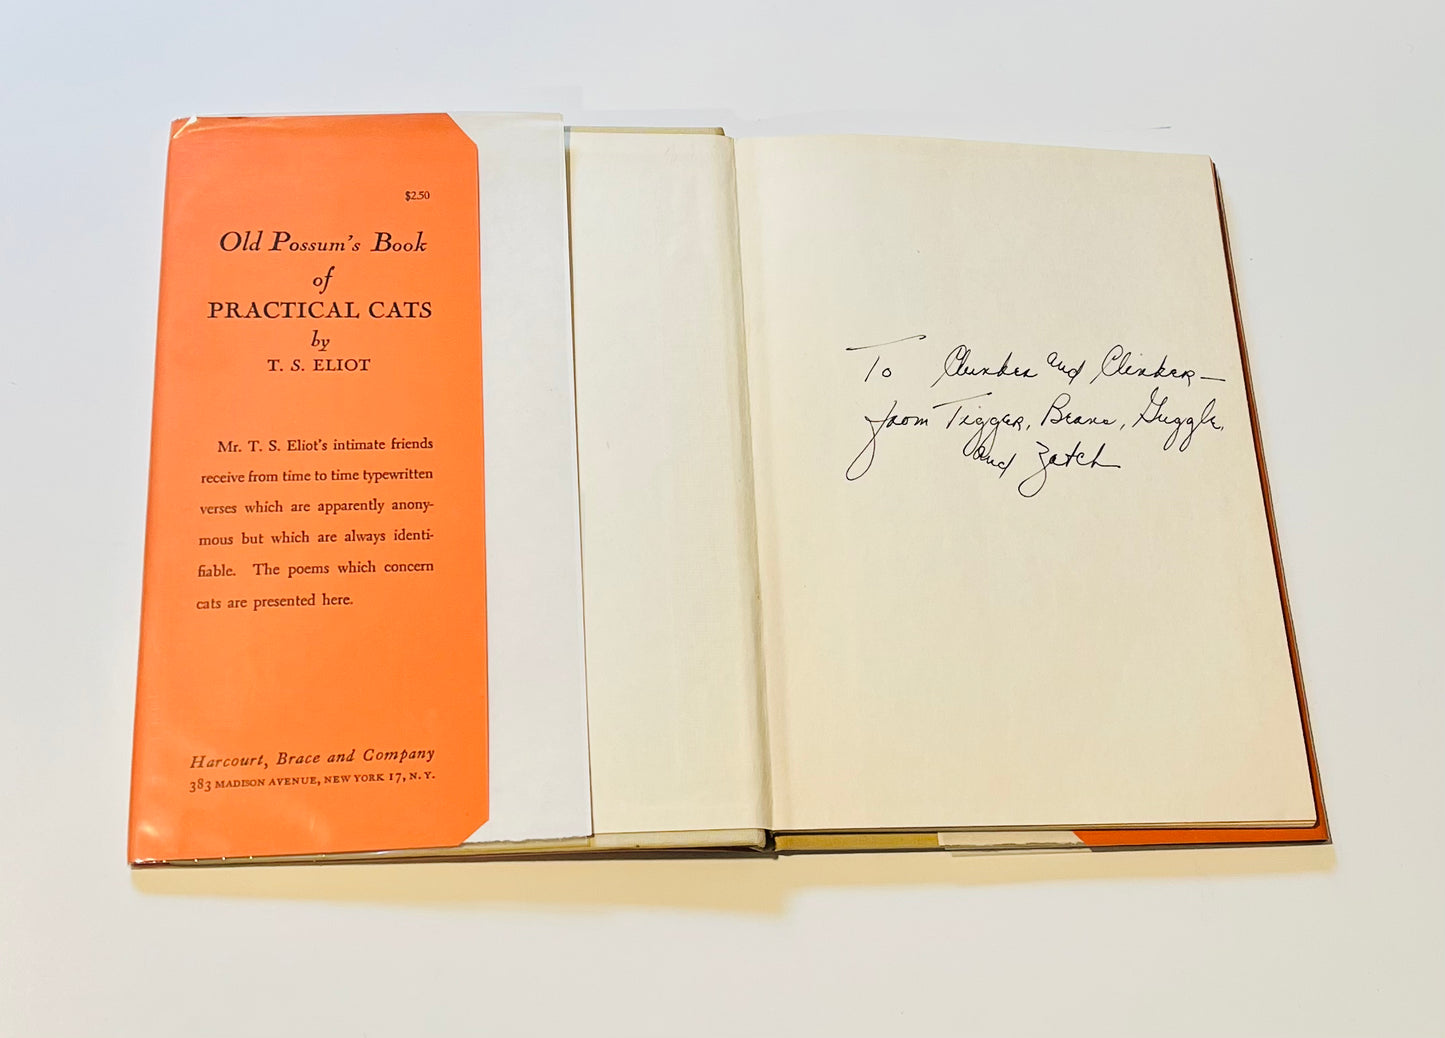 $2.50
Old Possum's Book
of
PRACTICAL CATS
by
T. S. ELIOT
Mr. T. S. Eliot's intimate friends
receive from time to time typewritten
verses which are apparently anony-
mous but which are always identi-
fiable. The poems which concern
cats are presented here.
Harcourt, Brace and Company
383 MADISON AVENUE, NEW YORK 17, N. Y.
To and Clinker—
from Tigger, Guggle,
and Zatch